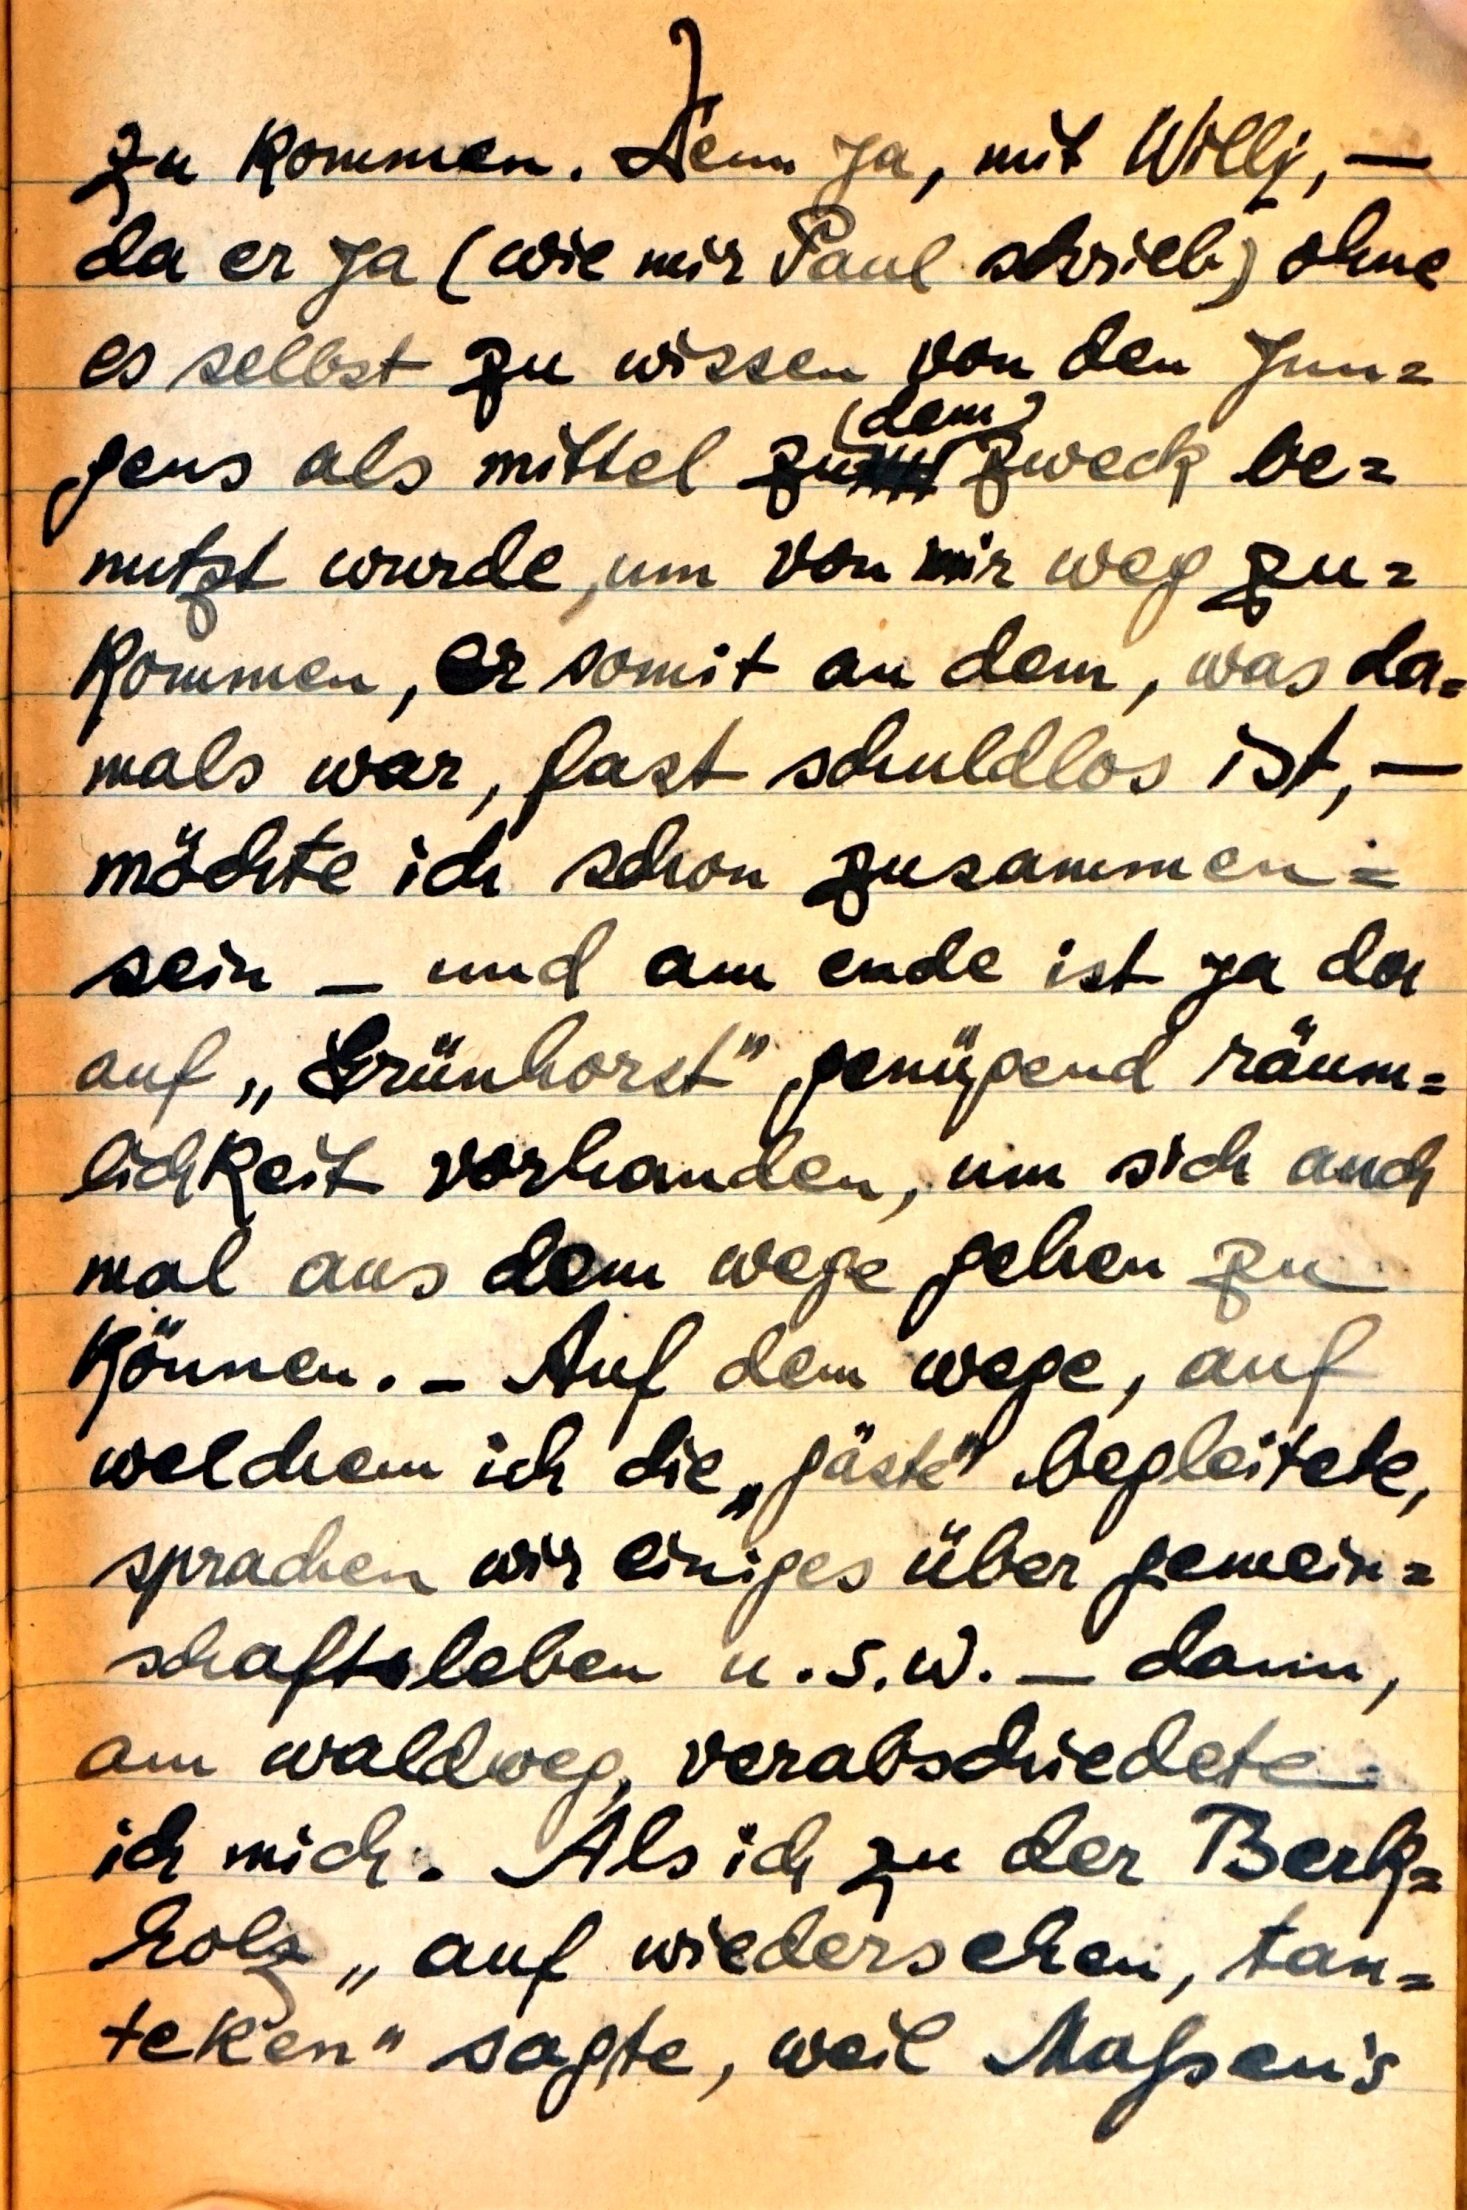 zu kommen. Denn ja, mit Willy, —
da er ja (wie mir Paul schrieb) ohne
es selbst zu wissen von den Jun=
gens als mittel zu (dem) zweck be=
nutzt wurde, um von mir weg zu=
kommen, er somit an dem, was da=
mals war, fast schuldlos ist, —
möchte ich schon zusammen=
sein — und am ende ist ja da
auf „Grünhorst" genügend räum=
lichkeit vorhanden, um sich auch
mal aus dem wege gehen zu
können. – Auf dem wege, auf
welchem ich die „gäste" begleitete,
sprachen wir einiges über gemein=
schaftsleben u.s.w. — dann,
am waldweg, verabschiedete
ich mich. Als ich zu der Berk=
holz „auf wiedersehen, tan=
teken" sagte, weil Maßen's